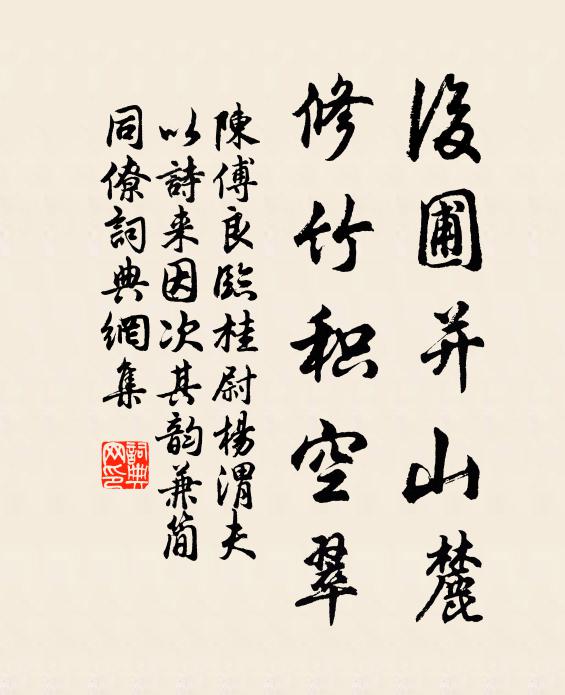 後圃并山麓
修竹积空翠
陳傅良臨桂尉楊渭夫
以詩来因次其韵兼简
同僚詞典網集
詞典
网印